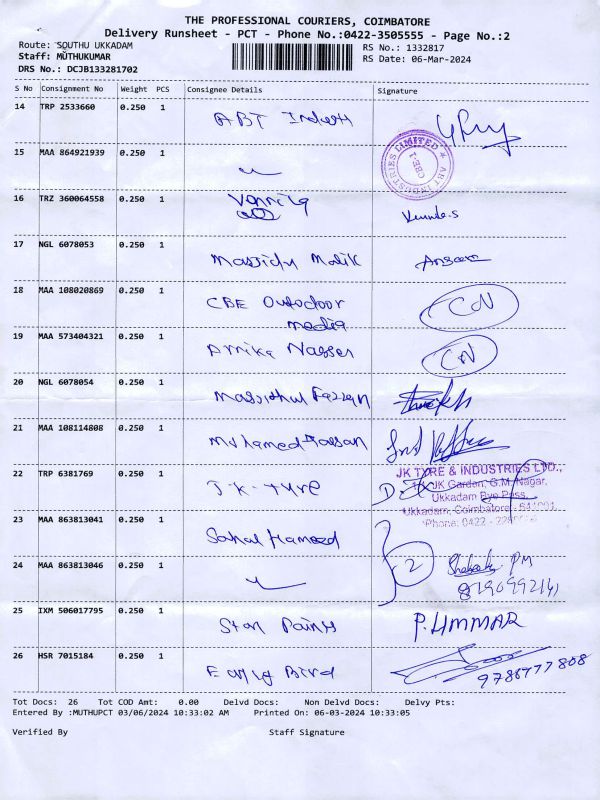 THE PROFESSIONAL COURIERS, COIMBATORE
Delivery Runsheet - PCT - Phone No.:0422-3505555 - Page No.:2
Route: SOUTHU UKKADAM
RS No.: 1332817
Staff: MUTHUKUMAR
RS Date: 06-Mar-2024
DRS No.: DCJB133281702
S No Consignment No Weight PCS Consignee Details Signature
14 TRP 2533660 0.250 1 ABT
15 MAA 864921939 0.250 1
ABT INDUSTRIES LIMITED
CBE-1
16 TRZ 360064558 0.250 1
17 NGL 6078053 0.250 1 Massidu Malik
18 MAA 108020869 0.250 1 CBE Outodoor
media
19 MAA 573404321 0.250 1 Nasser
20 NGL 6078054 0.250 1
21 MAA 108114808 0.250 1
JK TYRE & INDUSTRIES LTD.,
22 TRP 6381769 0.250 1 J.K. Tyre
JK Garden, G.M. Nagar,
Ukkadam Bye Pass,
Ukkadam, Coimbatore - 641001.
Phone: 0422 -
23 MAA 863813041 0.250 1 Hameed
24 MAA 863813046 0.250 1 2 PM
25 IXM 506017795 0.250 1 Paints P. UMMAR
26 HSR 7015184 0.250 1 Bird
9786777808
Tot Docs: 26 Tot COD Amt: 0.00 Delvd Docs: Non Delvd Docs: Delvy Pts:
Entered By :MUTHUPCT 03/06/2024 10:33:02 AM Printed On: 06-03-2024 10:33:05
Verified By Staff Signature